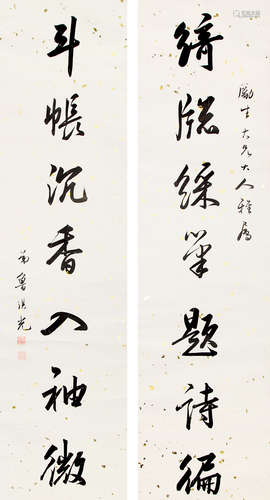 绮牕綵筆題詩徧
勵生大兄大人雅屬
斗帳沉香入袖微
弟魯淇光